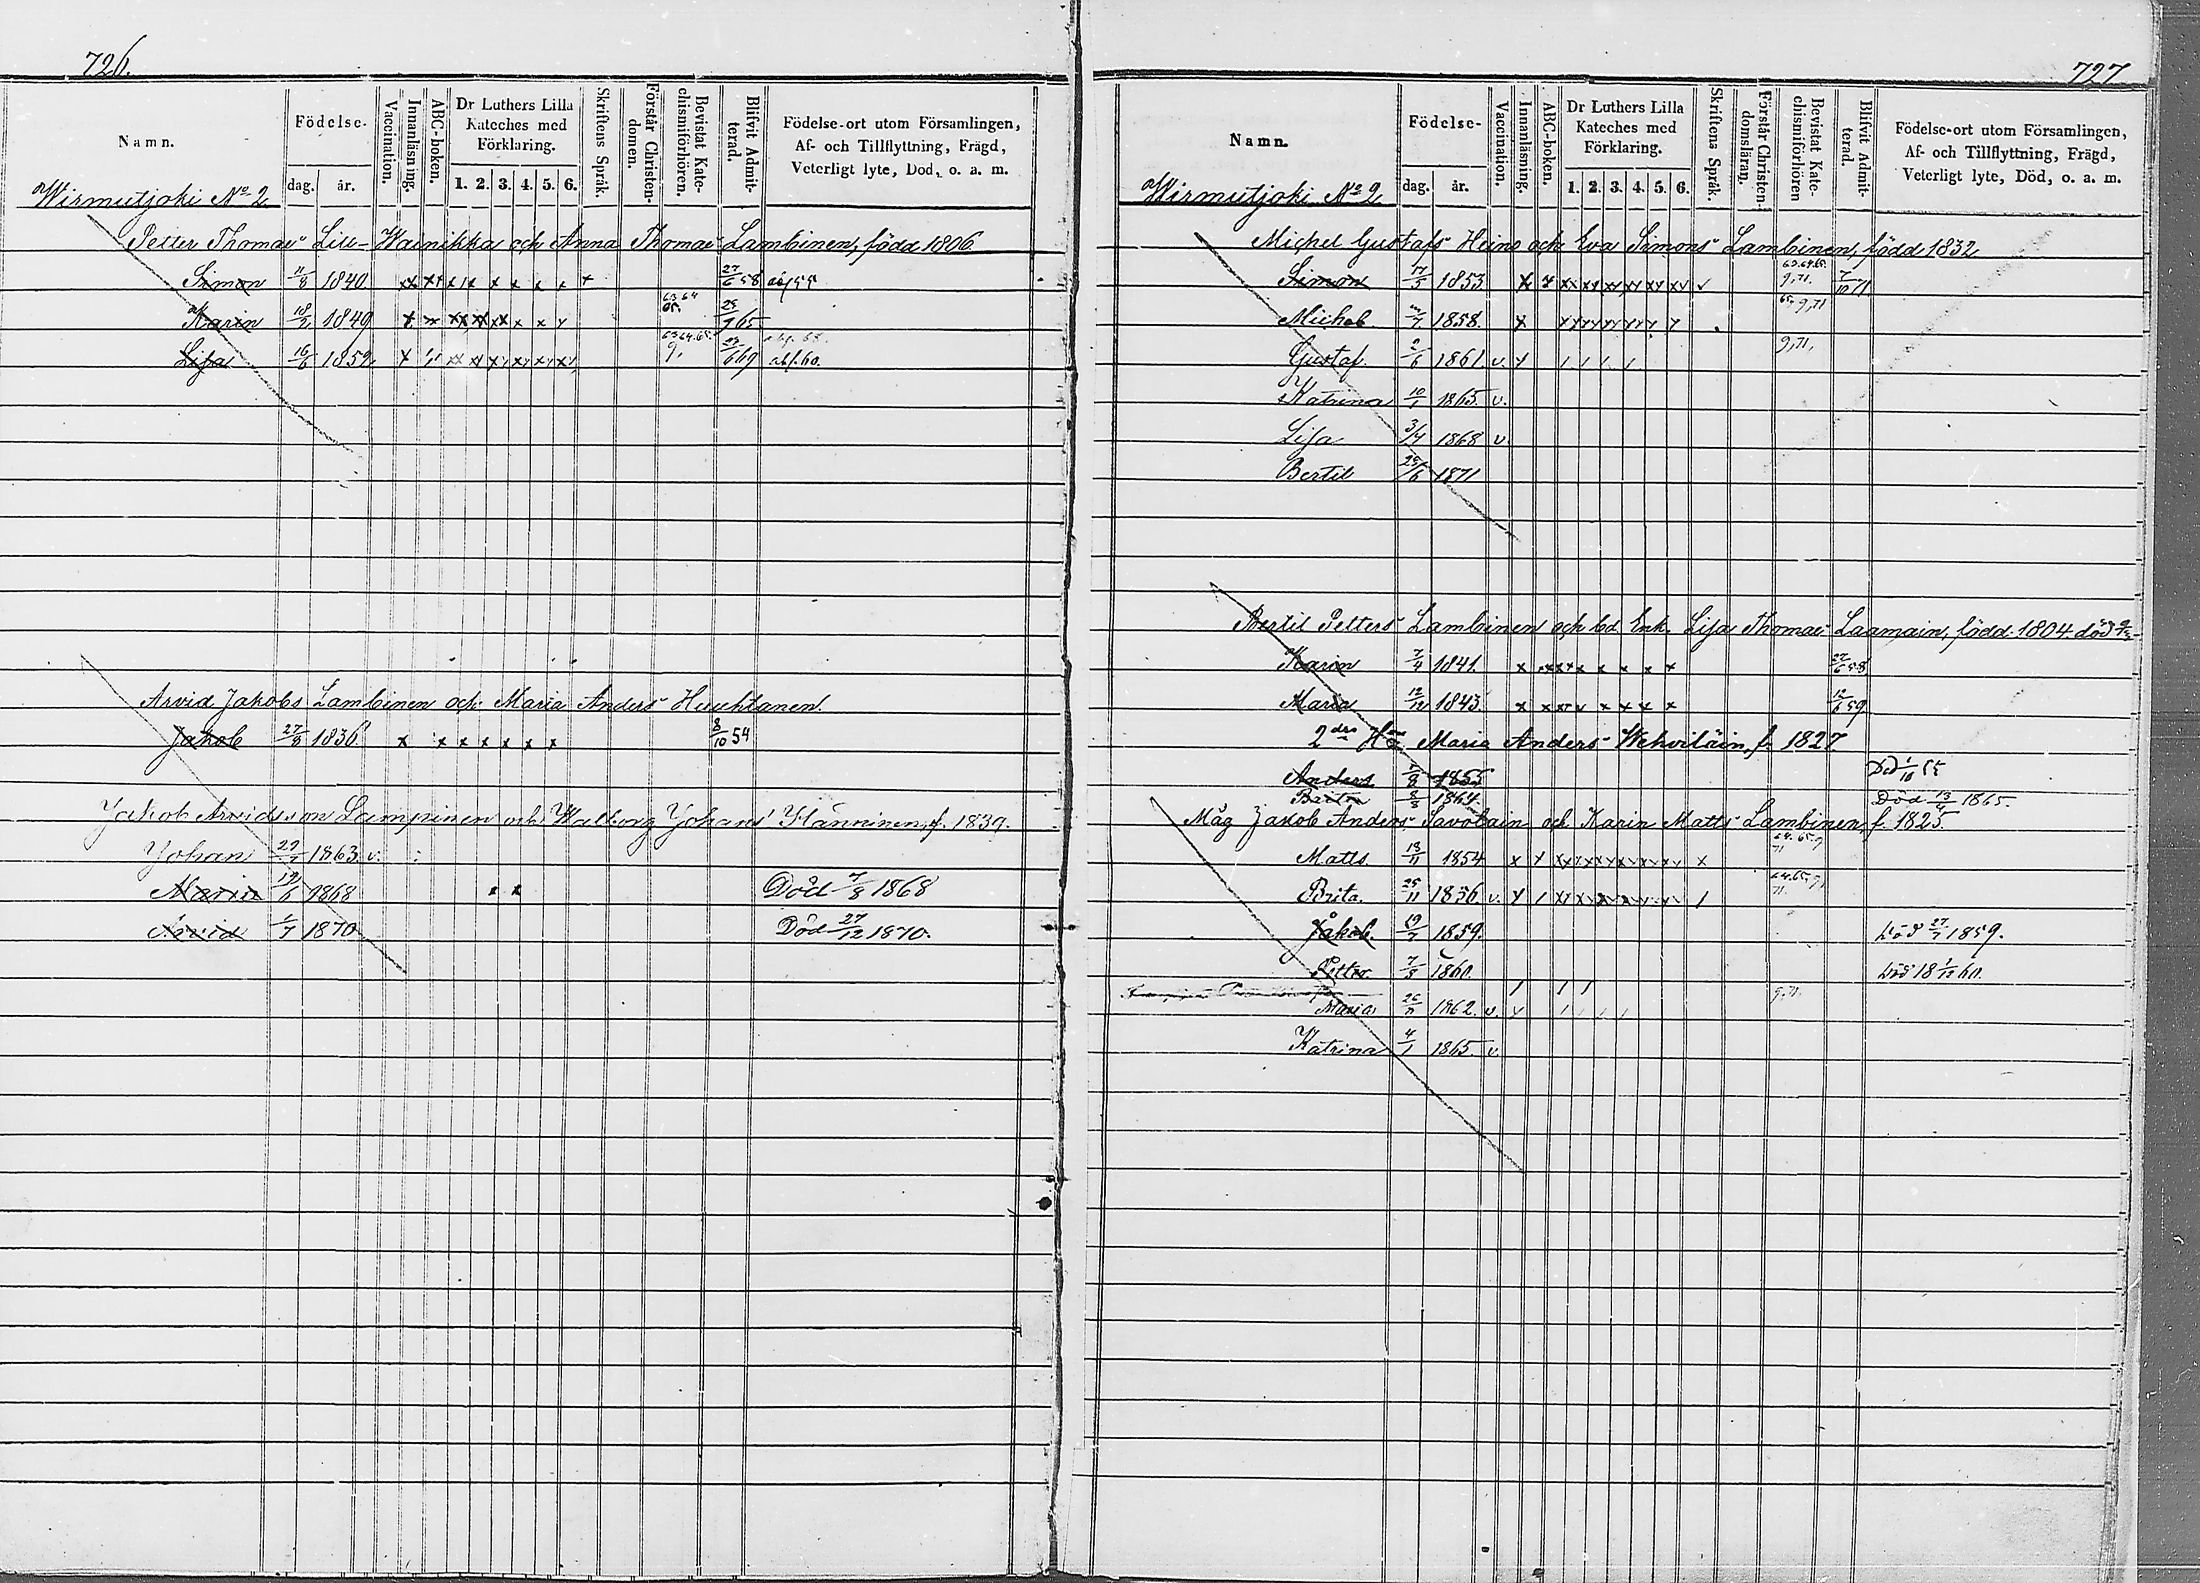 726.
Namn. Födelse- dag. år. Vaccination. Innanläsning. ABC-boken. Dr Luthers Lilla Kateches med Förklaring. 1. 2. 3. 4. 5. 6. Skriftens Språk. Förstår Christendomen. Bevistat Katechismiförhören. Blifvit Admitterad. Födelse-ort utom Församlingen, Af- och Tillflyttning, Frägd, Veterligt lyte, Död, o. a. m.
Wirmutjoki No 2
Petter Thomas Lill-Wainikka och Anna Thomas Lambinen, född 1806.
Simon 11/8 1840 x x x x x x x + 27/6 58
Karin 18/2 1849 63 64 65. 65
Lisa 16/6 1852 63.64.65. 9. 69
Arvid Jakobs Lambinen och Maria Anders Huuhtanen.
Jakob 27/8 1836 x x x x x x x 8/10 54
Jakob Arvidsson Lampinen och Walborg Johans Hänninen, f. 1839.
Johan 1863 v.
Maria 1868 x x Död 7/8 1868
Arvid 1/7 1870 Död 27/12 1870.
727
Namn. Födelse- dag. år. Vaccination. Innanläsning. ABC-boken. Dr Luthers Lilla Kateches med Förklaring. 1. 2. 3. 4. 5. 6. Skriftens Språk. Förstår Christendomsläran. Bevistat Katechismiförhören Blifvit Admitterad. Födelse-ort utom Församlingen, Af- och Tillflyttning, Frägd, Veterligt lyte, Död, o. a. m.
Wirmutjoki No 2
Michel Gustafs Heino och Eva Simons Lambinen, född 1832
Simon 17/5 1853 63.64.65. 9,71. 7/10 71
Michel 1858. 65. 9,71
Gustaf 2/6 1861. v. 9,71,
Katrina 10/1 1865. v.
Lisa 3/4 1868 v.
Bertil 1871
Bertil Petters Lambinen och bd Enk. Lisa Thomas Laamain, född 1804 död
Karin 7/4 1841. x x x x x x x 27/6 58
Maria 12/12 1843. x x x x x x x 12/6 59
2dra Maria Anders Wehviläin, f. 1827
Anders 1855 Död 1/10 55
Brita 1864. Död 13/4 1865.
Måg Jakob Anders Savolain och Karin Matts Lambinen f. 1825.
Matts 13/11 1854 64.65.9 71
Brita. 25/11 1856 v. 64.65.9 71.
Jakob. 19/7 1859. Död 27/7 1859.
Petter. 7/8 1860. Död 18 1/12 60.
Maria 1862. v. 9.71.
Katrina 4/1 1865. v.